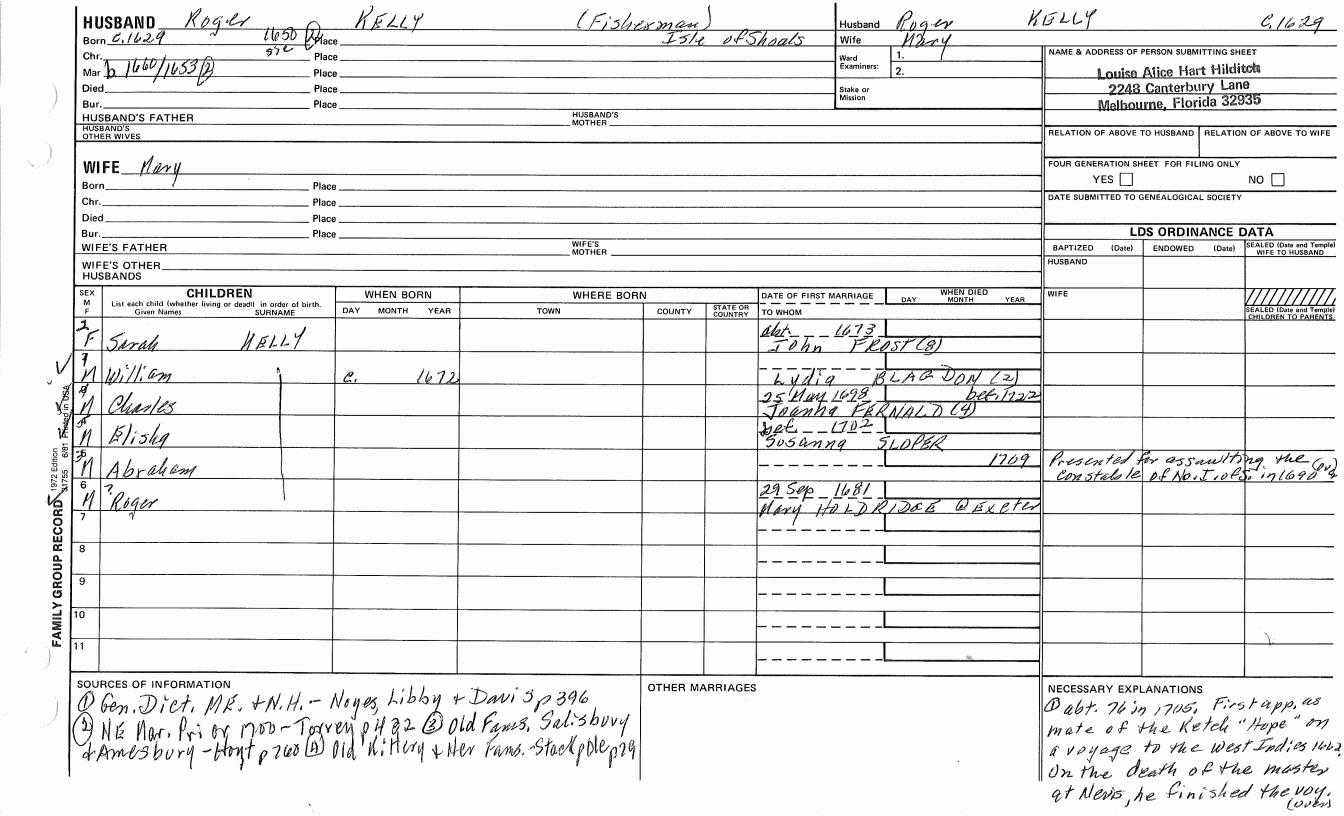 HUSBAND Roger KELLY (Fisherman)
Born c.1629 1650 (2) Place Isle of Shoals
Chr. Place
Mar b 1660/1653 (2) Place
Died Place
Bur. Place
HUSBAND'S FATHER HUSBAND'S MOTHER
HUSBAND'S OTHER WIVES
Husband Roger KELLY c.1629
Wife Mary
Ward Examiners: 1.
2.
Stake or Mission
NAME & ADDRESS OF PERSON SUBMITTING SHEET
Louise Alice Hart Hilditch
2248 Canterbury Lane
Melbourne, Florida 32935
RELATION OF ABOVE TO HUSBAND RELATION OF ABOVE TO WIFE
FOUR GENERATION SHEET FOR FILING ONLY
YES NO
DATE SUBMITTED TO GENEALOGICAL SOCIETY
WIFE Mary
Born Place
Chr. Place
Died Place
Bur. Place
WIFE'S FATHER WIFE'S MOTHER
WIFE'S OTHER HUSBANDS
LDS ORDINANCE DATA
BAPTIZED (Date) ENDOWED (Date) SEALED (Date and Temple) WIFE TO HUSBAND
HUSBAND
WIFE
SEALED (Date and Temple) CHILDREN TO PARENTS
SEX M F CHILDREN WHEN BORN WHERE BORN DATE OF FIRST MARRIAGE WHEN DIED
List each child (whether living or dead) in order of birth.
Given Names SURNAME DAY MONTH YEAR TOWN COUNTY STATE OR COUNTRY TO WHOM DAY MONTH YEAR
F Sarah KELLY abt. 1673
John FROST (3)
M William c. 1672
Lydia BLAGDON (2)
M Charles 25 May 1698 bef. 1722
Joanna FERNALD (4)
M Elisha bef. 1702
Susanna SLOPER
M Abraham 1709
Presented for assaulting the
constable of No. I. of S. in 1690
6 ? M Roger 29 Sep 1681
Mary HOLDRIDGE @ Exeter
7
8
9
10
11
FAMILY GROUP RECORD 1972 Edition 31755 6/81 Printed in USA
SOURCES OF INFORMATION
(1) Gen. Dict. ME. + N.H. - Noyes, Libby + Davis p 396
(2) NE Mar. Prior 1700 - Torrey p 432 (3) Old Fams. Salisbury
+ Amesbury - Hoyt p 760 (4) Old Kittery + Her Fams. - Stackpole p 79
OTHER MARRIAGES
NECESSARY EXPLANATIONS
(1) abt. 76 in 1705, First app. as
mate of the Ketch "Hope" on
a voyage to the West Indies 1662.
On the death of the master
at Nevis, he finished the voy.
(over)